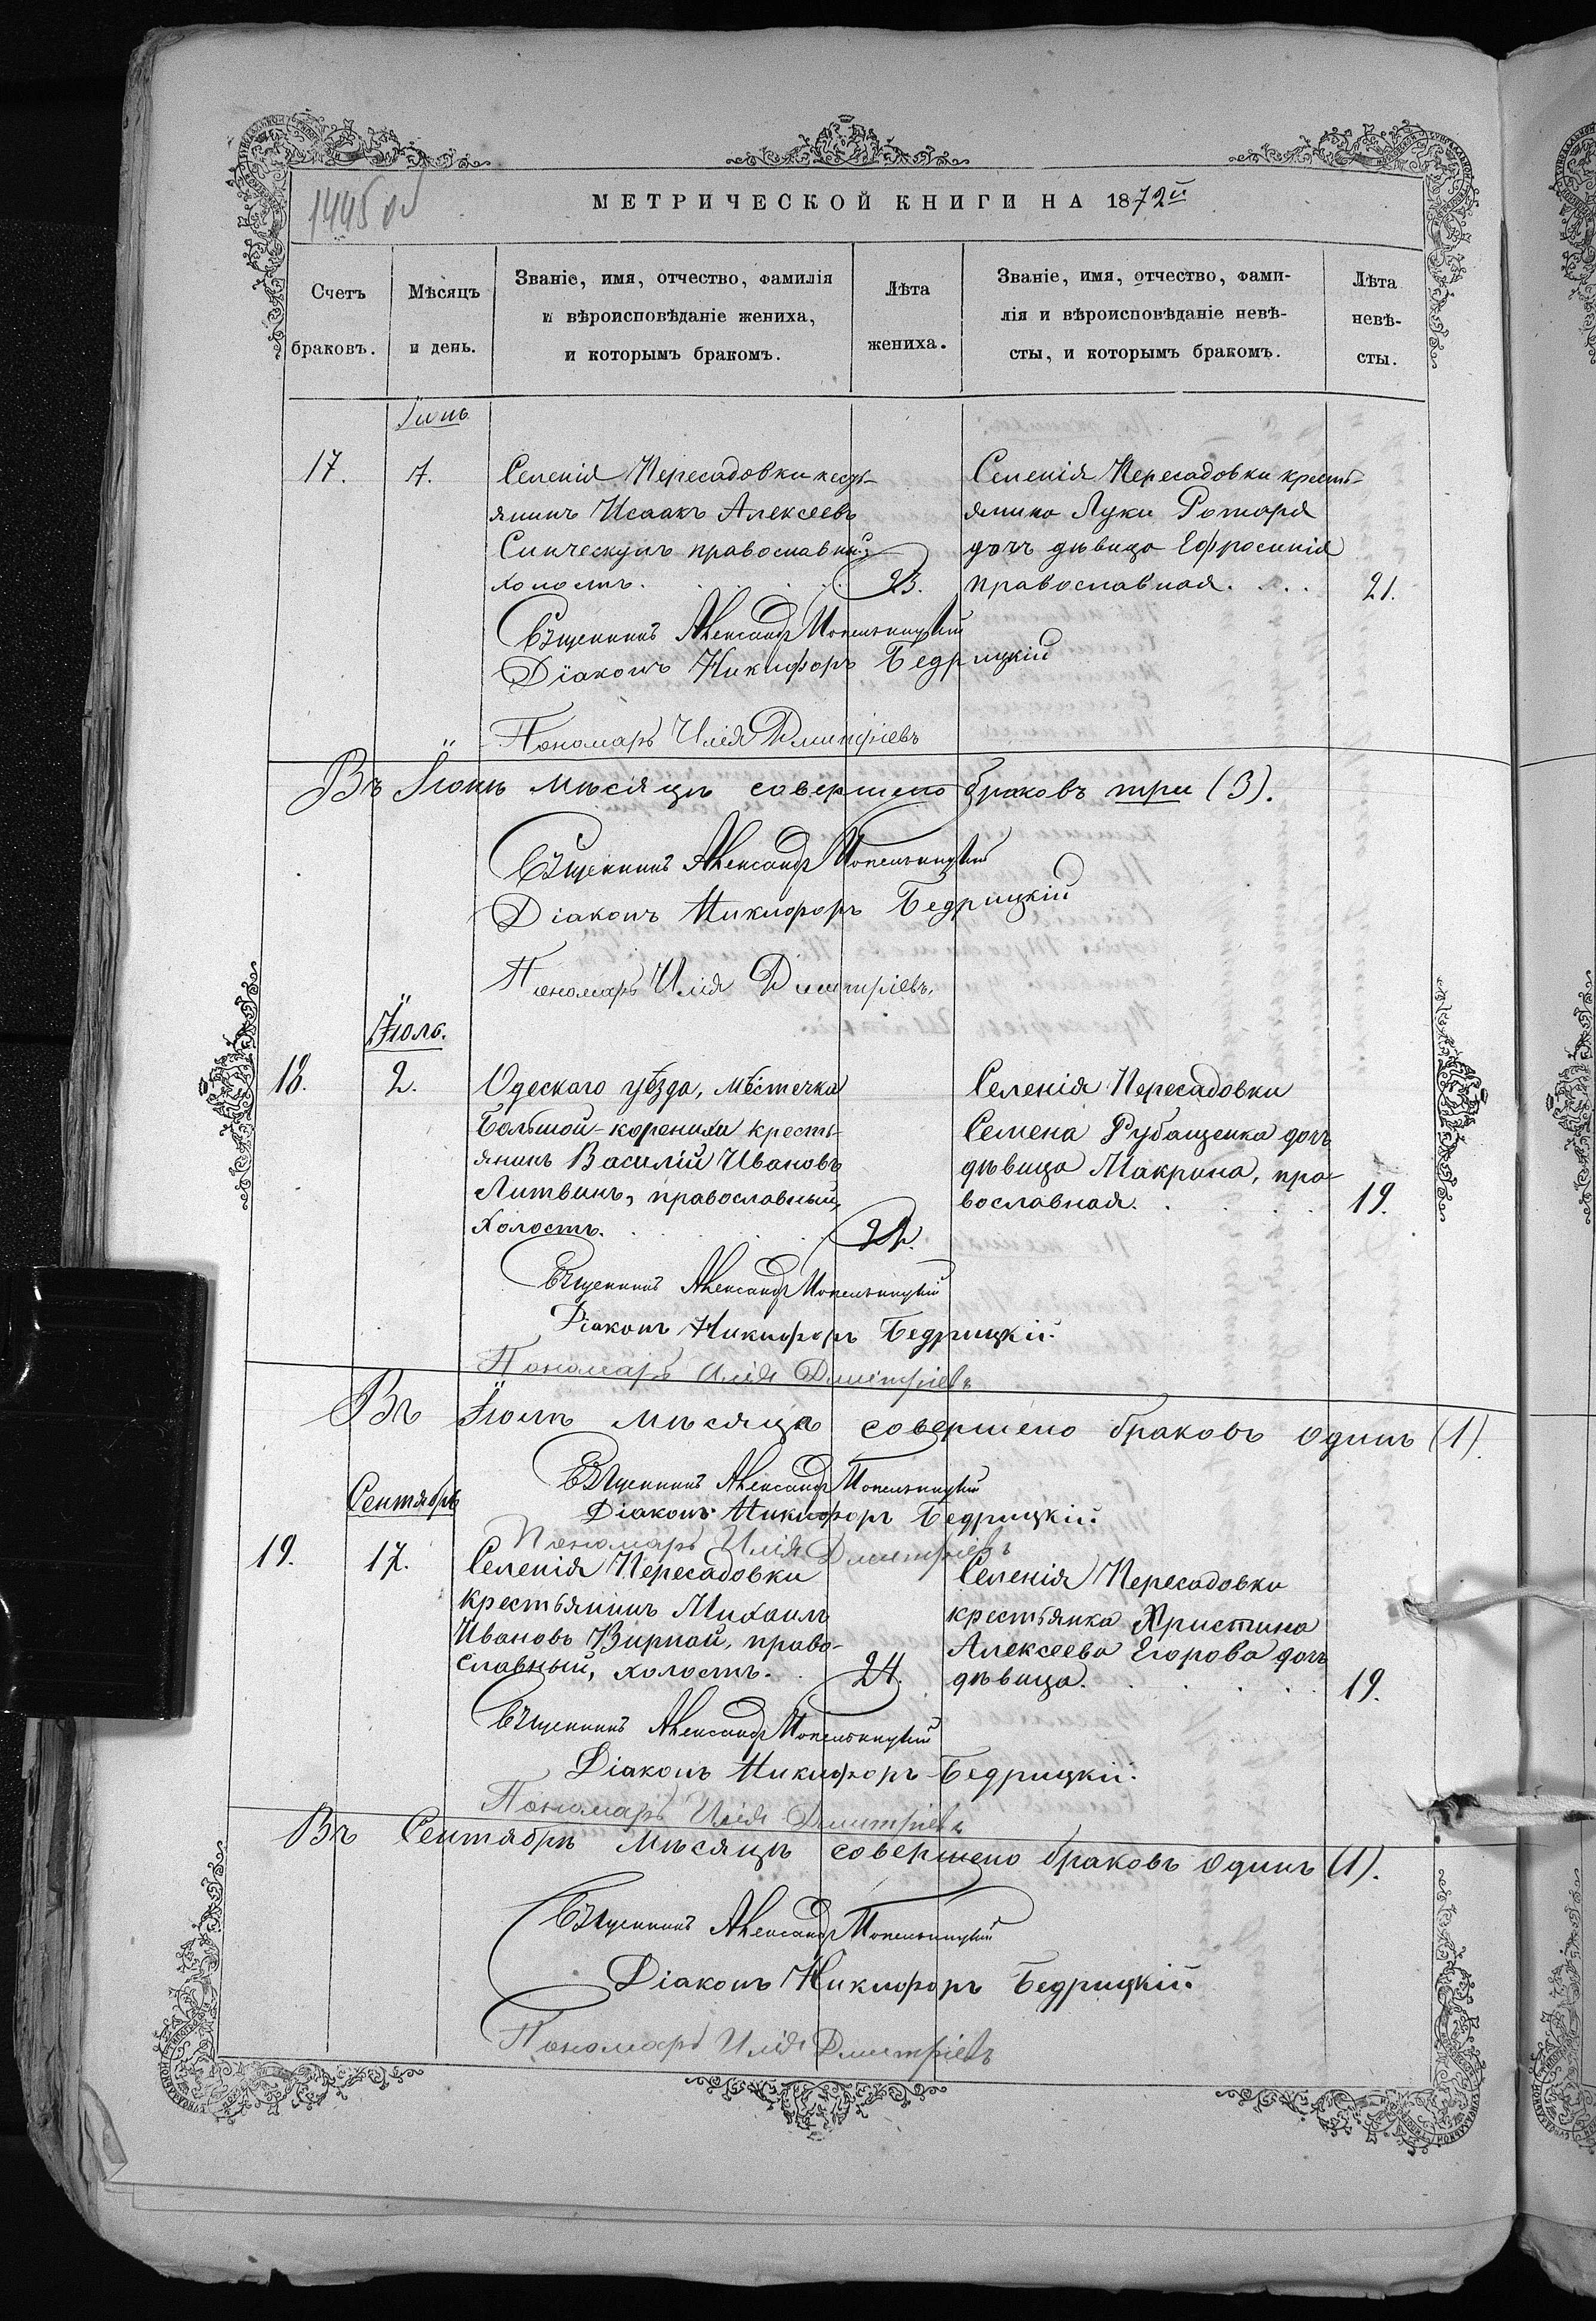 1445 об
МЕТРИЧЕСКОЙ КНИГИ НА 1872й
Счетъ браковъ.
Мѣсяцъ и день.
Званіе, имя, отчество, фамилія
и вѣроисповѣданіе жениха,
и которымъ бракомъ.
Лѣта жениха.
Званіе, имя, отчество, фами-
лія и вѣроисповѣданіе невѣ-
сты, и которымъ бракомъ.
Лѣта невѣ-
сты.
Іюнь
17. 7.
Селенія Пересадовки кресть-
янинъ Исаакъ Алексеевъ
православный,
холостъ. 23.
Селенія Пересадовки кресть-
янина Луки Ротаря
дочь дѣвица Ефросинія
православная. 21.
Священникъ Александръ
Діаконъ Никифоръ Бедрицкій
Пономарь Илія Дмитріевъ
Въ Іюнѣ мѣсяцѣ совершено браковъ три (3).
Священникъ Александръ
Діаконъ Никифоръ Бедрицкій
Пономарь Илія Димитріевъ.
Іюль.
18. 2.
Одескаго уѣзда, мѣстечка
Большой-коренихи кресть-
янинъ Василій Ивановъ
Литвинъ, православный,
холостъ.
Селенія Пересадовки
Семена Рубащенка дочь
дѣвица Макрина, пра-
вославная. 19.
Священникъ Александръ
Діаконъ Никифоръ Бедрицкій.
Пономарь Илія Дмитріевъ
Въ Іюлѣ мѣсяцѣ совершено браковъ одинъ (1).
Священникъ Александръ
Діаконъ Никифоръ Бедрицкій.
Пономарь Илія Дмитріевъ
Сентябрь
19. 17.
Селенія Пересадовки
крестьянинъ Михаилъ
Ивановъ Вирной, право-
славный, холостъ. 24.
Селенія Пересадовки
крестьянка Христина
Алексеева Егорова дочь
дѣвица. 19.
Священникъ Александръ
Діаконъ Никифоръ Бедрицкій.
Пономарь Илія Дмитріевъ
Въ Сентябрѣ мѣсяцѣ совершено браковъ одинъ (1).
Священникъ Александръ
Діаконъ Никифоръ Бедрицкій.
Пономарь Илія Дмитріевъ